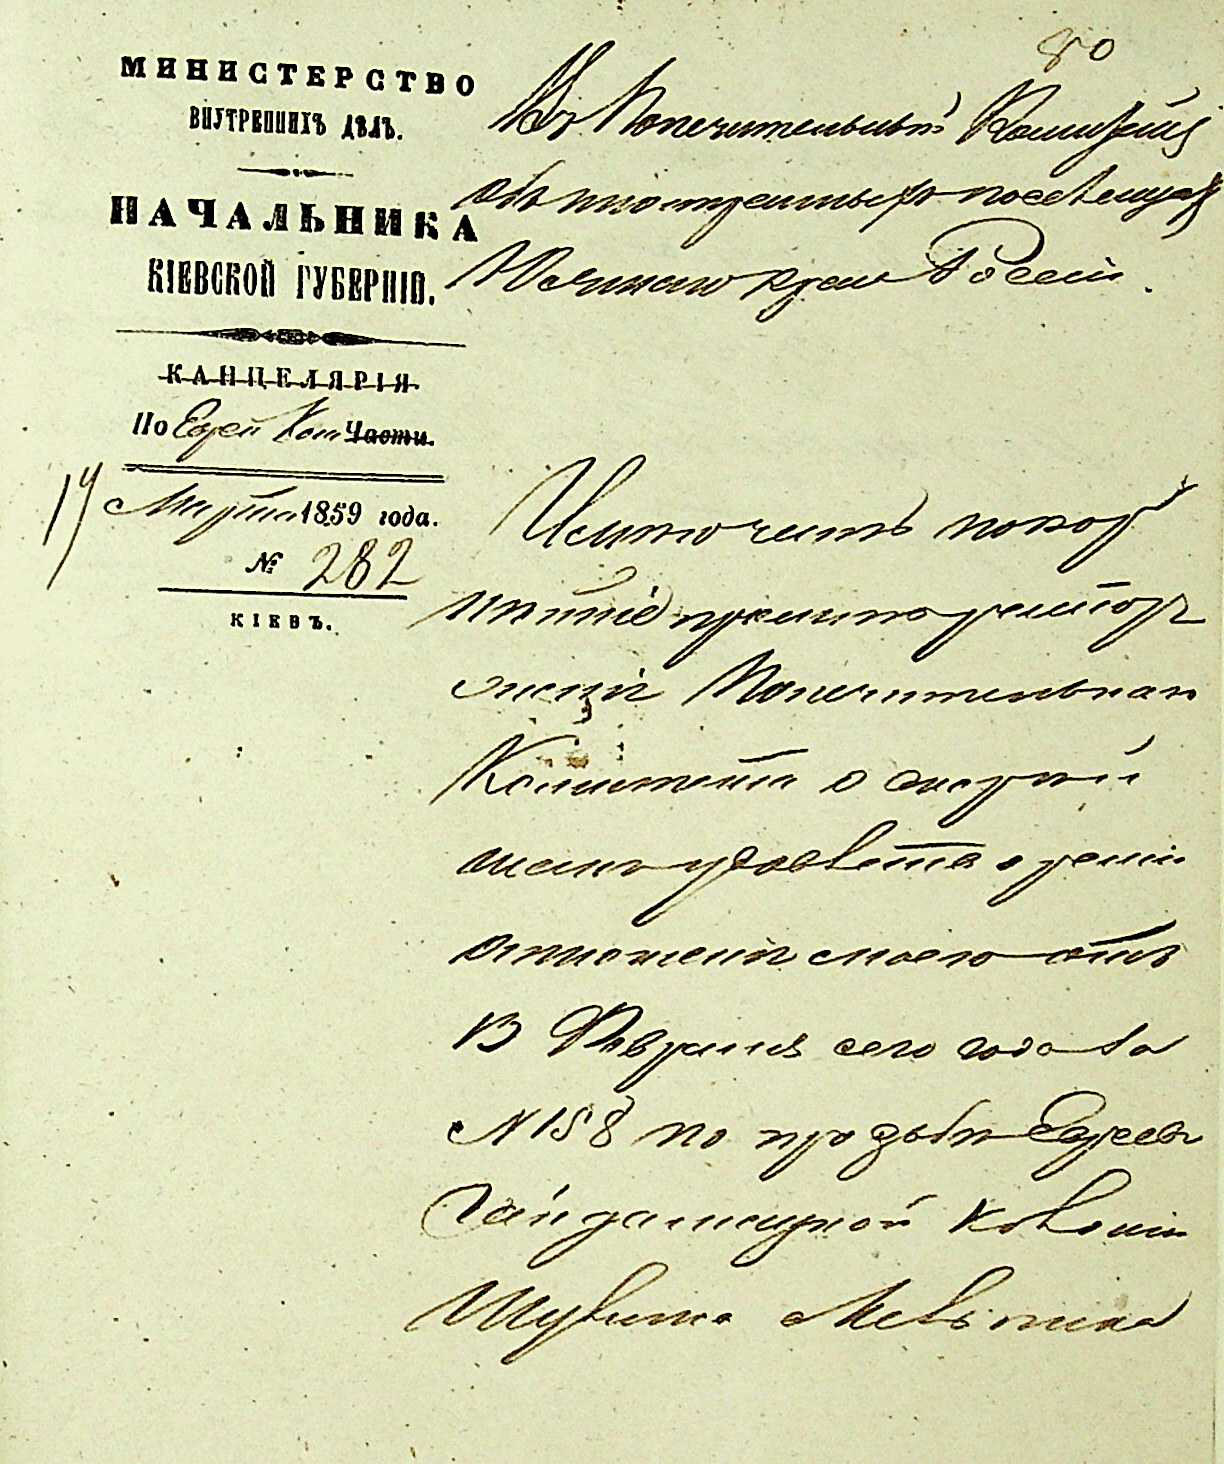 80
МИНИСТЕРСТВО
ВНУТРЕННИХЪ ДѢЛЪ.
НАЧАЛЬНИКА
КІЕВСКОЙ ГУБЕРНІИ.
КАНЦЕЛЯРІЯ
По Еврей Кол Части.
17 Марта 1859 года.
№ 282
КІЕВЪ.
Въ Попечительный Комитетъ
объ иностранныхъ поселенцахъ
Южнаго края Россіи.
покор
нѣйше прошу
Попечительный
Комитетъ о скорѣй
шемъ удовлетвореніи
отношенія моего отъ
13 Февраля сего года за
№ 158 по просьбѣ Еврея
колоніи